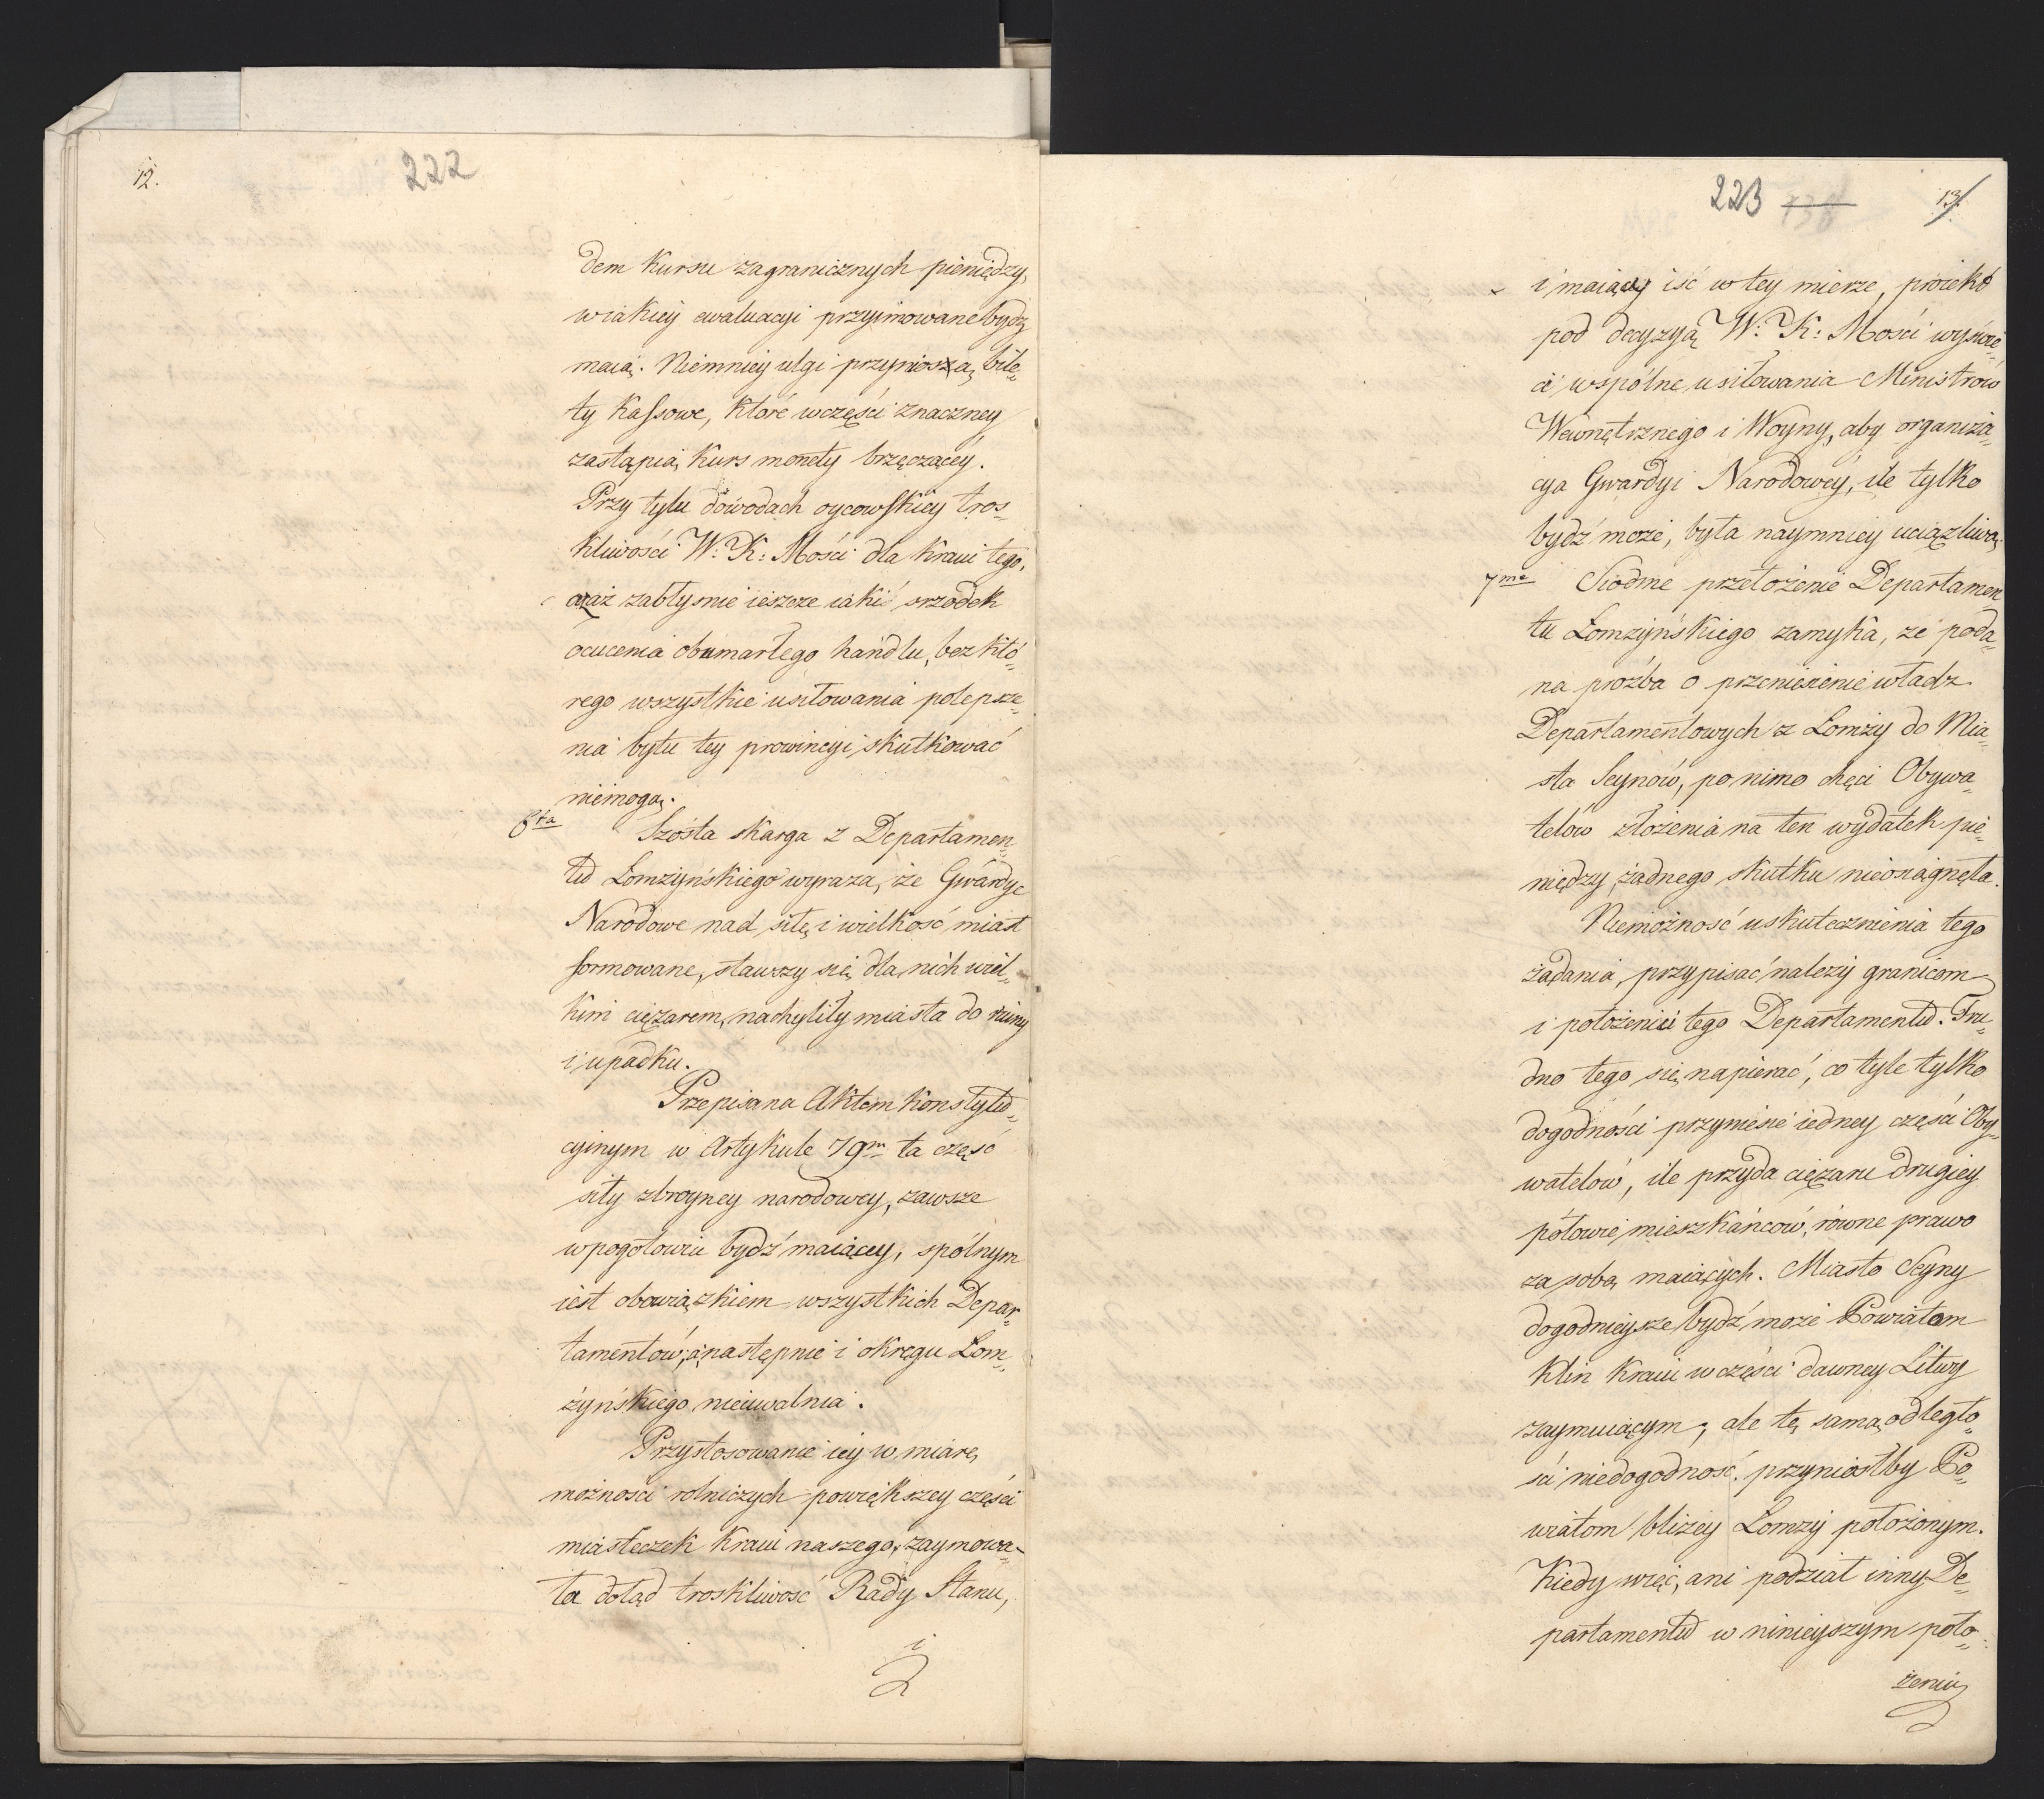 12.
222
dem kursu zagranicznych pieniędzy,
wiakiey ewaluacyi przyimowane bydź
maią. Niemniey ulgi przyniosą bile„
ty Kassowe, które wczęści znaczney
zastąpią kurs monety brzęczącey.
Przy tylu dowodach oycowskiey tros„
kliwości W. K: Mości dla kraiu tego,
aż zabłysnie ieszcze iaki srzodek
ocucenia obumarłego handlu, bez któ„
rego wszystkie usiłowania polepsze„
nia bytu tey prowincyi skutkować
niemogą.
6ta
Szósta skarga z Departamen„
tu Łomżyńskiego wyraża, że Gwardye
Narodowe nad siłę i wielkość miast
formowane, stawszy się dla nich wiel„
kim ciężarem, nachyliły miasta do ruiny
i upadku.
Przepisana Aktem Konstytu„
cyinym w Artykule 79m ta część
siły zbroyney narodowey, zawsze
wpogotowiu bydź maiącey, spólnym
iest obowiązkiem wszystkich Depar„
tamentów, a następnie i okręgu Łom„
żyńskiego nieuwalnia.
Przystosowanie iey w miarę
możności rolniczych powiększey części
miasteczek kraiu naszego, zaymowa„
ła dotąd troskliwość Rady Stanu,
i
223
13.
i maiący iść wtey mierze, proiekt
pod decyzyą W: K: Mości wyświe„
ci wspólne usiłowania Ministrów
Wewnętrznego i Woyny, aby organiza„
cya Gwardyi Narodowey, ile tylko
bydź może, była naymniey uciążliwą.
7me
Siódme przełożenie Departamen
tu Łomżyńskiego zamyka, że poda„
na proźba o przeniesienie władz
Departamentowych z Łomży do Mia„
sta Seynów, pomimo chęci Obywa„
telów złożenia na ten wydatek pie„
niędzy, żadnego skutku nieosiągnęła.
Niemożność uskutecznienia tego
żądania, przypisać należy granicom
i położeniu tego Departamentu. Tru„
dno tego się napierać, co tyle tylko
dogodności przyniesie iedney części Oby„
watelów, ile przyda ciężaru drugiey
połowie mieszkańców, równe prawo
za sobą maiących. Miasto Seyny
dogodnieysze bydź może Powiatom
klin kraiu w części dawney Litwy
zaymuiącym, ale tę samą odległo„
ści niedogodność przyniosłby Po„
wiatom bliżey Łomży położonym.
Kiedy więc, ani podział inny De„
partamentu w ninieyszym poło„
żeniu